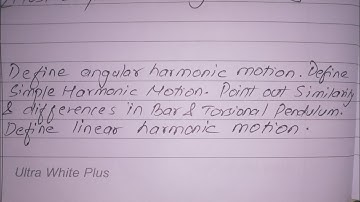 Define angular harmonic motion. Define
Simple Harmonic Motion. Point out Similarity
& differences in Bar & Torsional Pendulum.
Define linear harmonic motion.
Ultra White Plus